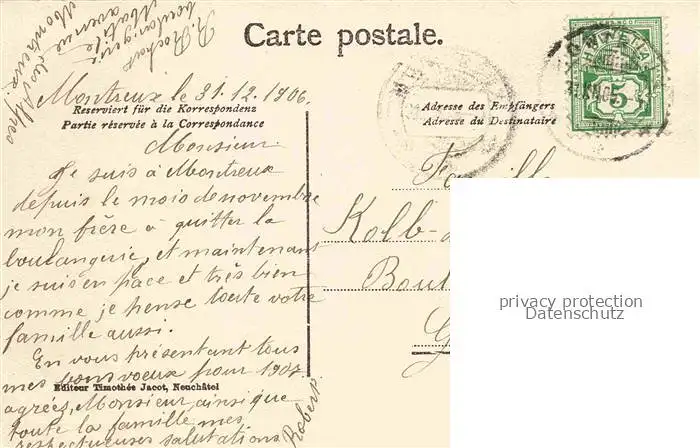 R. Rochat
boulangerie
avenue
des Alpes
Montreux
Carte postale.
Montreux le 31.12.1906.
Reserviert für die Korrespondenz
Partie réservée à la Correspondance
Adresse des Empfängers
Adresse du Destinataire
5
Monsieur
Je suis à Montreux
depuis le mois de novembre
mon frère à quitter la
boulangerie, et maintenant
je suis en place et très bien
comme je pense toute votre
famille aussi.
En vous présentant tous
mes bons voeux pour 1907
agréez, Monsieur, ainsi que
toute la famille mes
respectueuses salutations
Robert
Famille
Kolb-
Boul
G
Editeur Timothée Jacot, Neuchâtel
privacy protection
Datenschutz